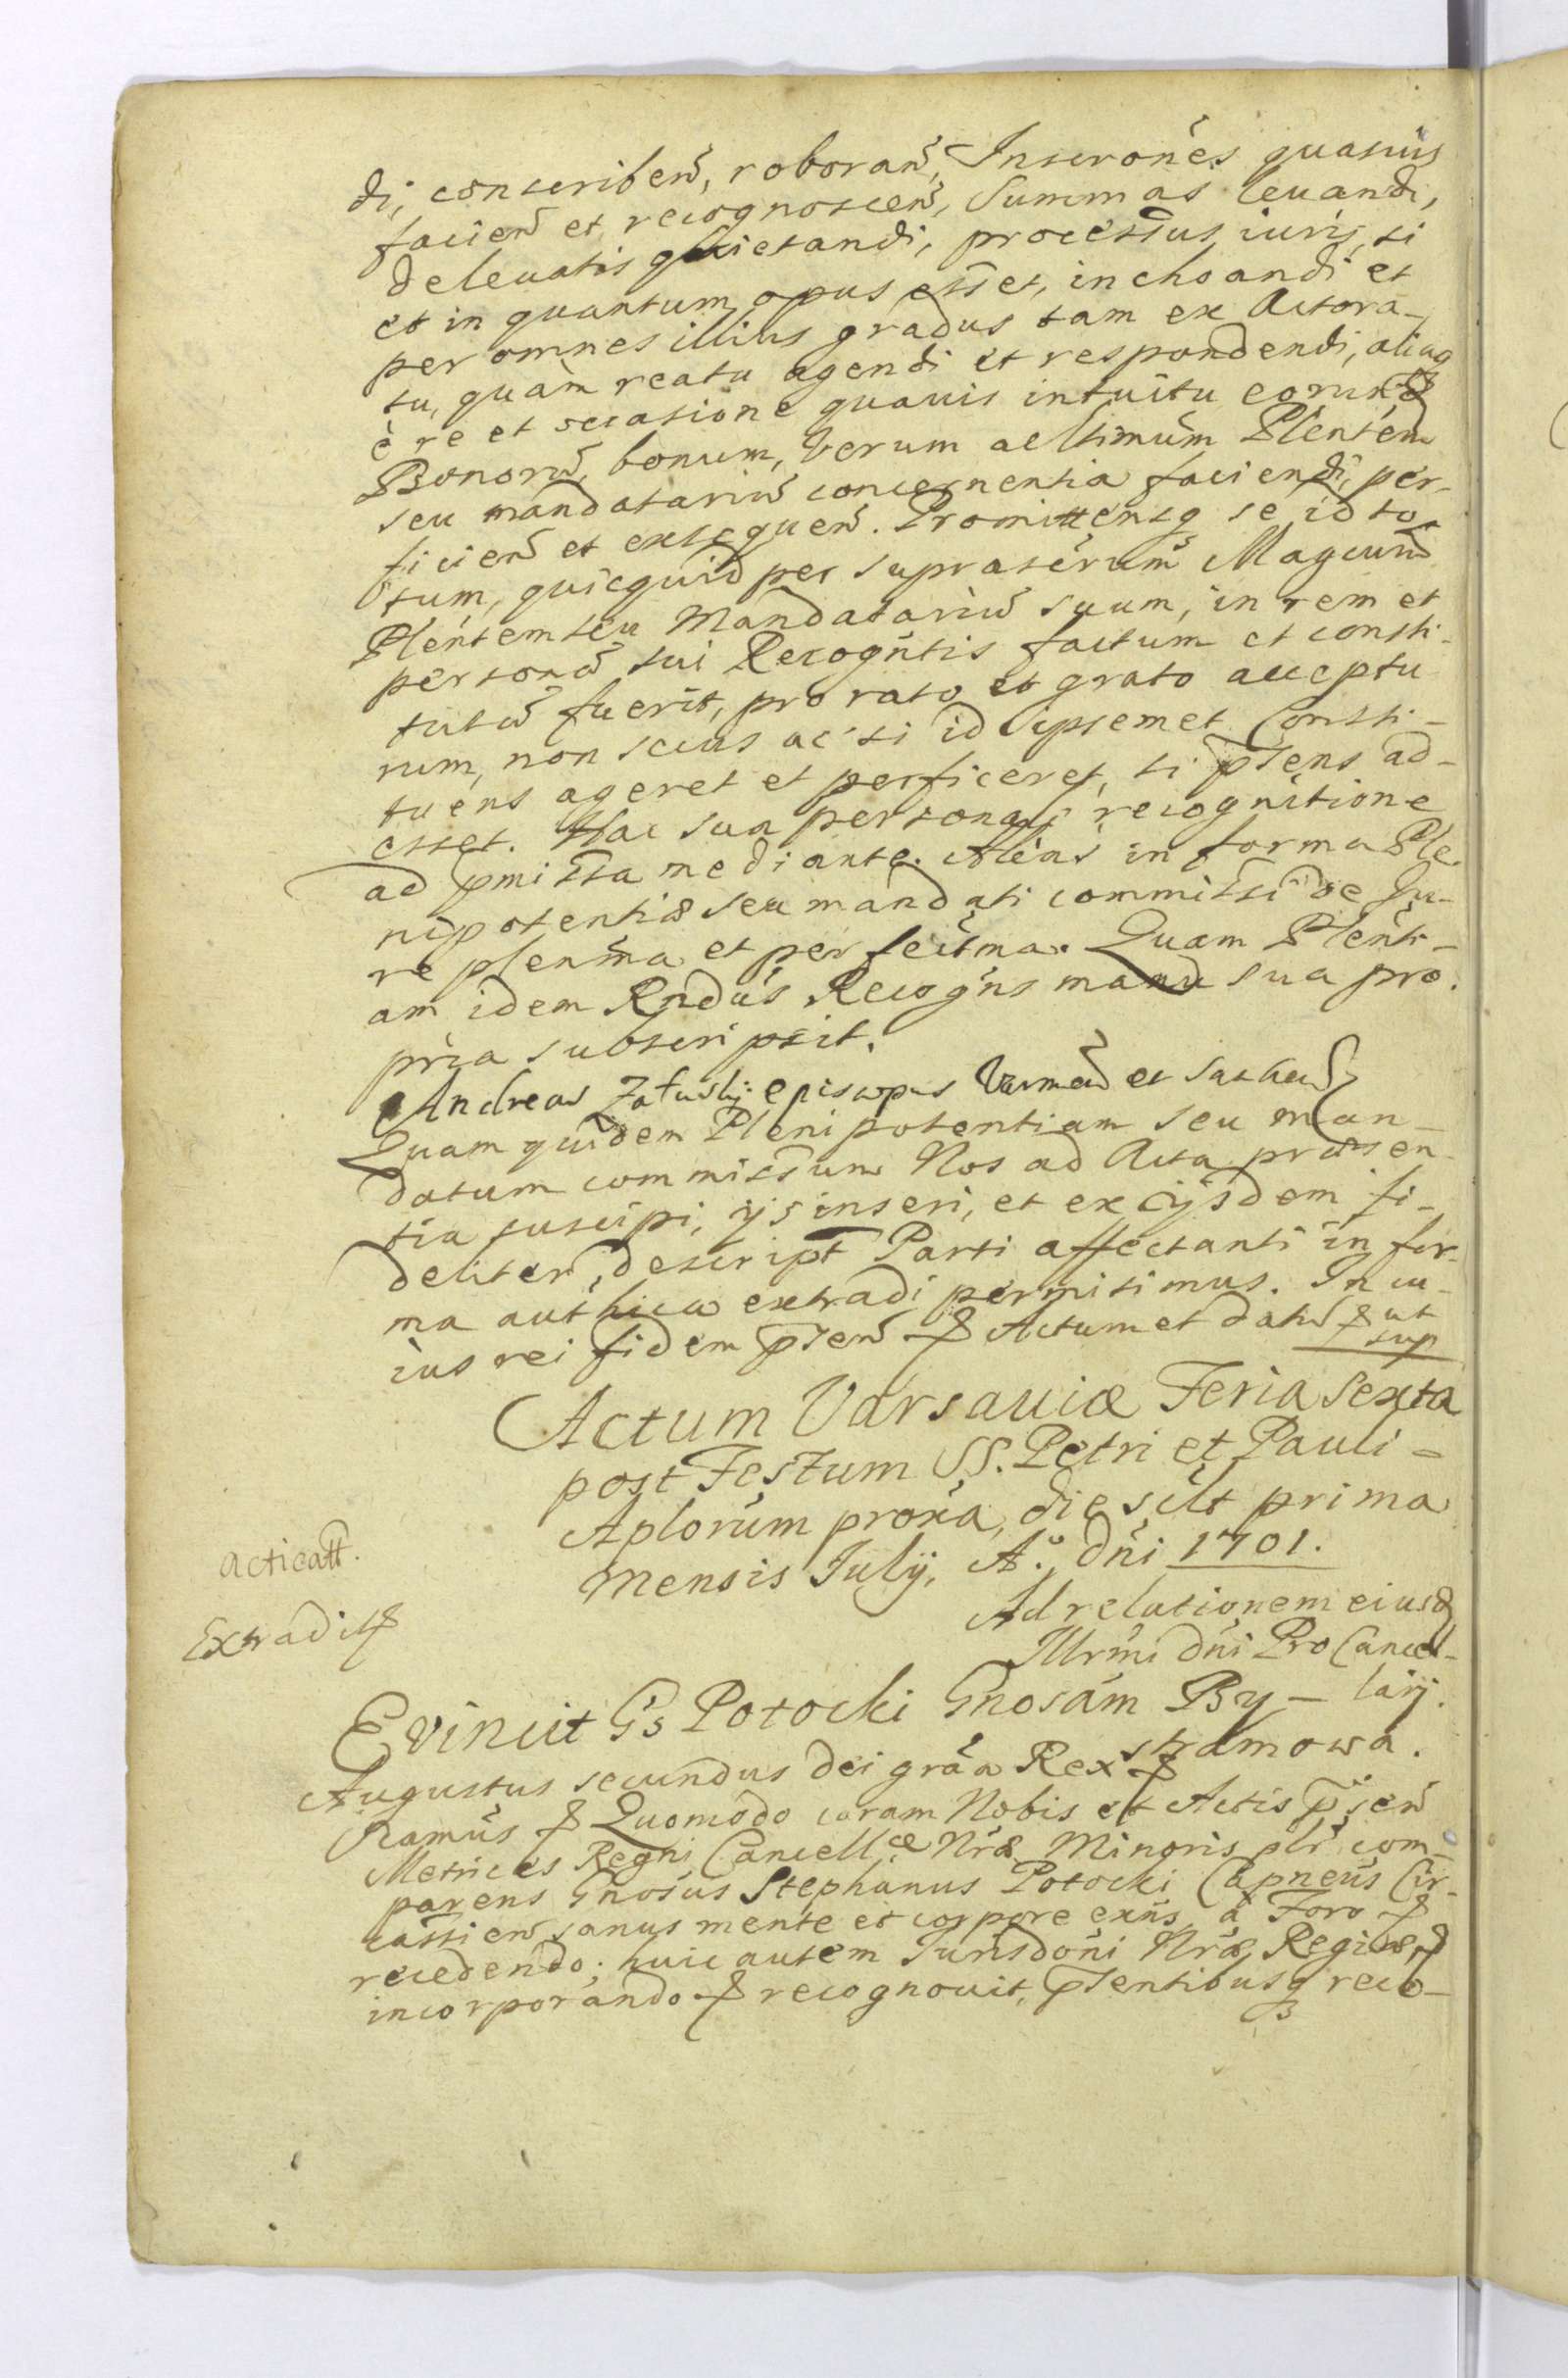 di, conscriben̄, roboran̄, Inscrōnes quasuis
facien̄ et recognoscen̄, Summas levandi,
de levatis quietandi, processus iuris, si
et in quantum opus esset, inchoandi et
per omnes illius gradus tam ex Actora-
tu, quàm reatu agendi et respondendi, aliaq̃
è re et occasione quavis intuitu eorund
Bonorū, bonum, verum ac ltimum Plentem
seu mandatariū concernentia faciendi, per-
ficien̄ et exsequen̄. Promittensq̃ se id to-
tum, quicquid per suprascrum Magcum
Plentem seu Mandatariū suum, in rem et
personā sui Recogntis factum et consti-
tutū fuerit, pro rato et grato acceptu
rum, non secus ac si id ipsemet Consti-
tuens ageret et perficeret, si p̄sens ad-
esset. Hac sua personali recognitione
ad pmissa mediante. Alias in forma Ple-
nipotentiæ seu mandati commissi de Ju-
re plenma et perfectma. Quam Plenti-
am idem Rndus Recogns manu sua pro-
pria subscripsit.
Andreas Załuskij episcopus Varmien̄ et Sambien̄
Quam quidem Plenipotentiam seu man-
datum commissum Nos ad Acta præsen-
tia suscipi, ijs inseri, et ex ijsdem fi-
deliter descript̄ Parti affectanti in for-
ma authica extradi permisimus. In cu-
ius rei fidem p̄sen̄ & Actum et datū & ut
sup
Actum Varsaviæ Feria Sexta
post Festum SS. Petri et Pauli =
Aplorum proxa, die scilt prima
Mensis Julij, A.º dñi 1701.
acticatt.
Ad relationem eiusd
Extradit &
Illrmi dñi ProCancel-
larij.
Evincit Gs Potocki Gnosam By-
stramowa.
Augustus secundus Dei grãa Rex &
ficamus & Quomodo coram Nobis et Actis p̄sen̄
Metrices Regni Cancellæ Nræ Minoris plr com-
parens Gnosus Stephanus Potocki Capneus Cir-
cassien̄ sanus mente et corpore exns, à Foro &
recedendo; huic autem Jurisdoni Nræ Regiæ &
incorporando & recognovit, p̄sentibusq̃ reco-